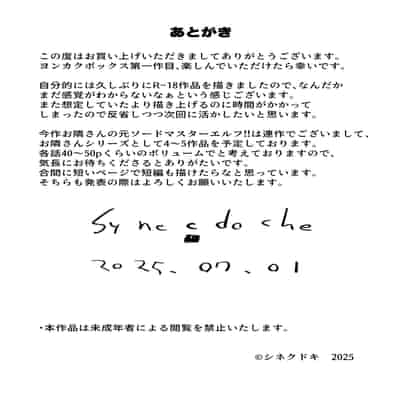 あとがき
この度はお買い上げいただきましてありがとうございます。
ヨンカクボックス第一作目、楽しんでいただけたら幸いです。
自分的には久しぶりにR-18作品を描きましたので、なんだか
まだ感覚がわからないなぁという感じございます。
また想定していたより描き上げるのに時間がかかって
しまったので反省しつつ次回に活かしたいと思います。
今作お隣さんの元ソードマスターエルフ!!は連作でございまして、
お隣さんシリーズとして4〜5作品を予定しております。
各話40〜50pくらいのボリュームでと考えておりますので、
気長にお待ちくださるとありがたいです。
合間に短いページで短編も描けたらなと思っています。
そちらも発表の際はよろしくお願いいたします。
Synecdoche
2025.07.01
・本作品は未成年者による閲覧を禁止いたします。
©シネクドキ 2025